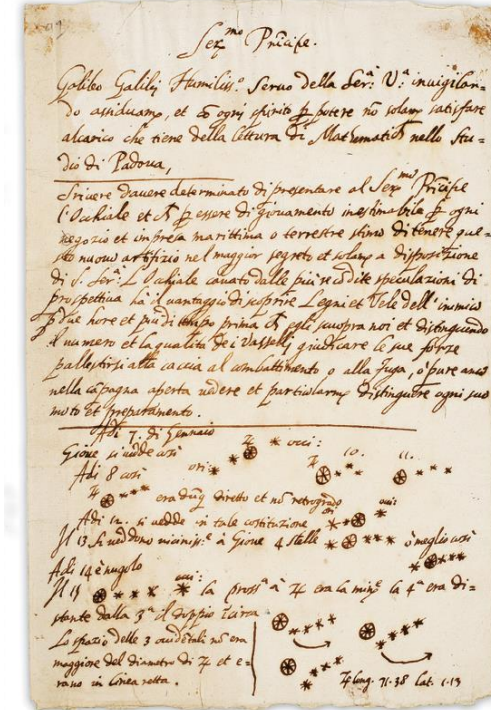 Ser.mo Principe.
Galileo Galilei Humiliss.o Servo della Ser.a V.a invigilan=
do assiduam.e, et cõ ogni spirito p̲ potere nõ solam satisfare
alcarico che tiene della lettura di Mathematich nello Stu=
dio di Padova,
Scrivere davere determinato di presentare al Ser.mo Pricipe
l'Occhiale et p̲ essere di giovamento inestimabile p̲ ogni
negozio et impresa marittima o terrestre stimo di tenere que=
sto nuovo artifizio nel maggior segreto et solam a disposizione
di S. Ser.a L'Ochiale cavato dalle più recõdite speculazioni di
prospettiva ha il vantaggio di scoprire Legni et Vele dell'inimico
p̲ due hore et più di tempo prima egli scuopra noi et distinguendo
il numero et la qualità dei vasselli giudicare le sue forze
pallestirsi alla caccia al combattimento o alla fuga, o pure anco
nella cãpagna aperta vedere et particularm distinguere ogni suo
moto et preparamento.
Adi 7. di Gennaio
Giove si vede così ♃ * occi:
Adi 8 così ori: 10. 11.
♃ era dũq diretto et nõ retrogrado
Adi 12. si vedde in tale costituzione ori occi
Il 13 si veddono vicinissi.e à Giove 4 stelle ò meglio così
Adi 14 è nugolo
Il 15 occi: la pross.a à ♃ era la min.e la 4.a era di=
stante dalla 3.a il doppio ĩcirca
Lo spazio delle 3 occidẽtali nõ era
maggiore del diametro di ♃ et e=
rano in linea retta.
♃ long. 71.38 Lat. 1.13